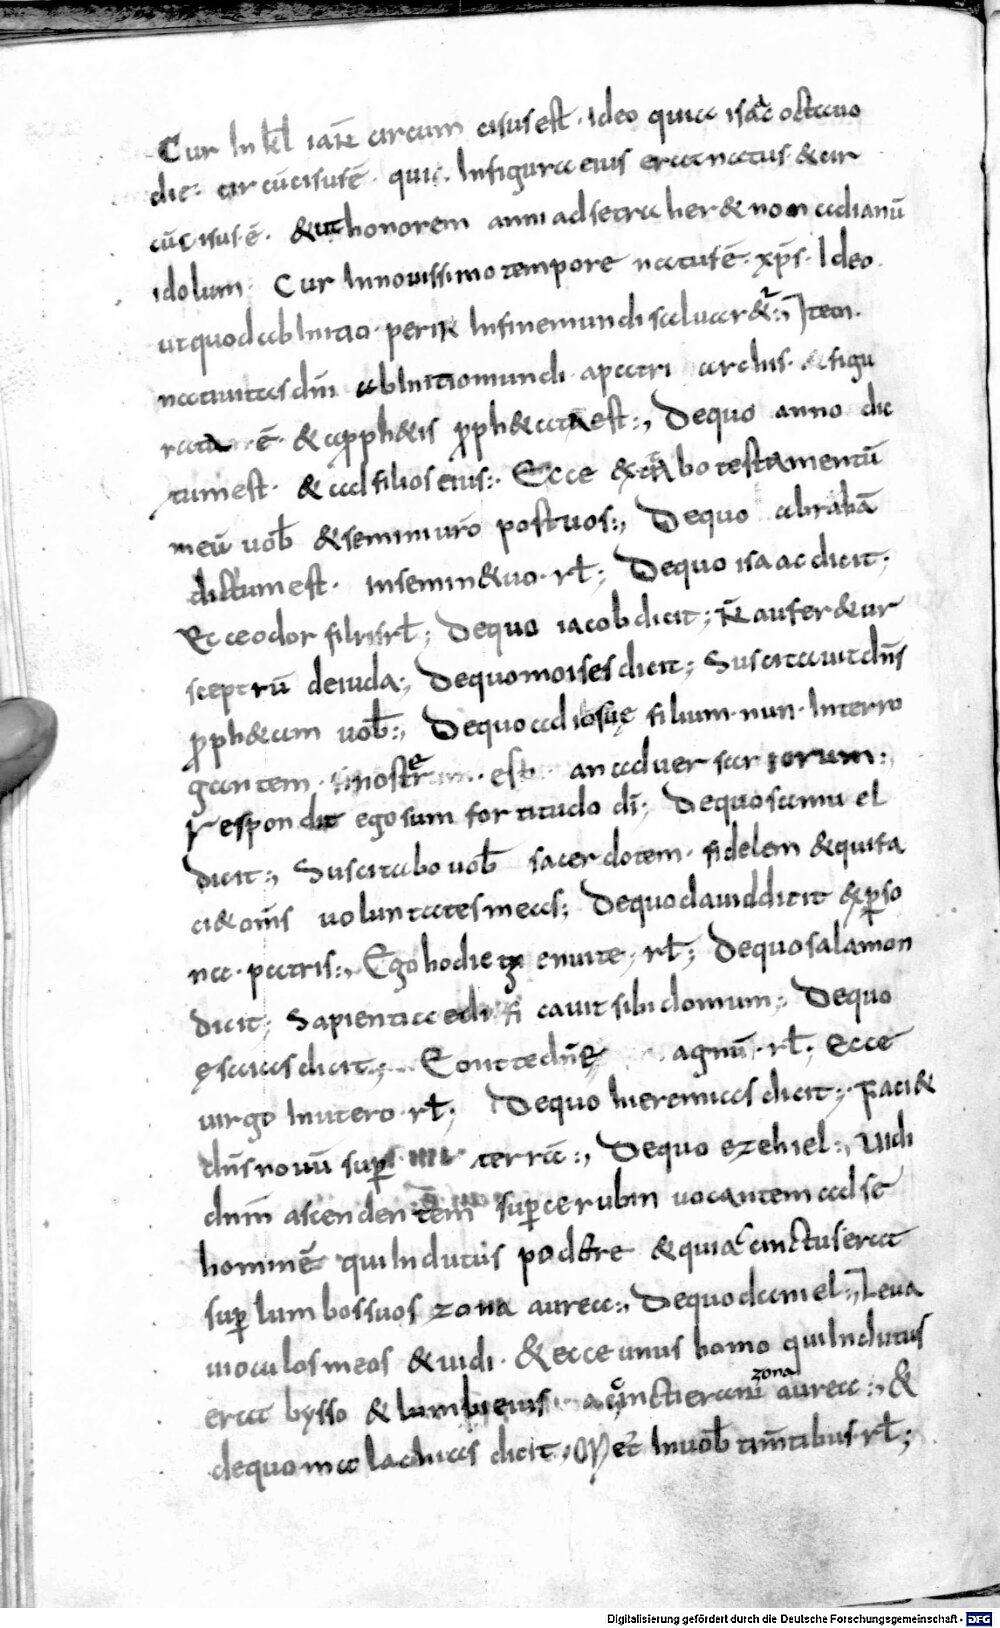 Cur In kl ianr circum cisus est · Ideo quia isac octauo
die · circūcisus ē · quia · In figura eius erat natus · & cir
cūcisus · ē · & ut honorem anni ad se traher& non ad ianū
idolum · Cur In nouissimo tempore natus ē · xp̄s · Ideo
ut quod ab Initio · periit In fine mundi saluar&ur :, Item ·
natiuitas dn̄i ab Initio mundi · a patri archis · figu
rata ē · & a p̄ph&is p̄ph&ata est :, De quo anno dic
tum est · & ad filios eius :· Ecce excitabo testamentū
meū uob̄ & semini ur̄o post uos :, De quo abrahā
dictum est · in semine tuo · rl̄ ; De quo isaac dicit ;
Ecce odor filii rl̄ ; De quo iacob dicit ; N̄ aufer&ur
sceptrū de iuda ; De quo moises dicit ; Suscitauit dn̄s
p̄ph&am uob̄ :, De quo ad iosue filium · nun · Interro
gantem · noster · est an aduersariorum :,
respondit ego sum fortitudo dī ; De quo samu el
dicit :, Suscitabo uob̄ sacerdotem · fidelem & qui fa
ci& om̄s uoluntates meas ; De quo dauid dicit & p̱so
na · patris :, Ego hodie genui te , rl̄ ; De quo salamon
dicit ; Sapientia edificauit sibi domum ; De quo
esaias dicit ; Emitte dn̄e agnū · rl̄ ; Ecce
uirgo In utero · rl̄ ; De quo hieremias dicit ; Faci&
dn̄s nouū sup̱ terra :, De quo ezehiel :, Uidi
dn̄m ascendentem sup̱ cerubin uocantem ad se
hominē qui Indutus podere & qui accinctus erat
sup̱ lumbos suos zona aurea :, De quo daniel :, Leua
ui oculos meos & uidi · & ecce unus homo qui Indutus
erat bysso & lumbi eius accincti erant zona aurea :, &
de quo malachias dicit ; Oriet̄ In uob̄ tim̄tibus · rl̄ ;
Digitalisierung gefördert durch die Deutsche Forschungsgemeinschaft - DFG